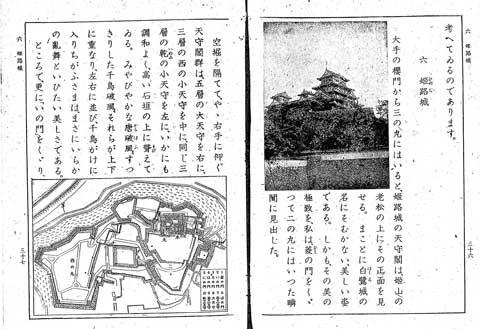 考へてゐるのであります。
六 姫路城
大手の櫻門から三の丸にはいると、姫路城の天守閣は、姫山の
老松の上にその正面を見
せる。まことに白鷺城の
名にそむかない、美しい姿
である。しかも、その美の
極致を、私は菱の門をくぐ
つて二の丸にはいつた瞬
間に見出した。
六 姫路城
三十六
六 姫路城
三十七
空堀を隔ててやゝ右手に仰ぐ
天守閣群は、五層の大天守を右に、
三層の西の小天守を中に、同じ三
層の乾の小天守を左に、いかにも
調和よく、高い石垣の上に聳えて
ゐる。みやびやかな唐破風、すつ
きりした千鳥破風、それらが上下
に重なり、左右に並び、千鳥がけに
入りちがふさまは、まさにいらか
の亂舞といひたい美しさである。
ところで更に、いの門をくゞり、